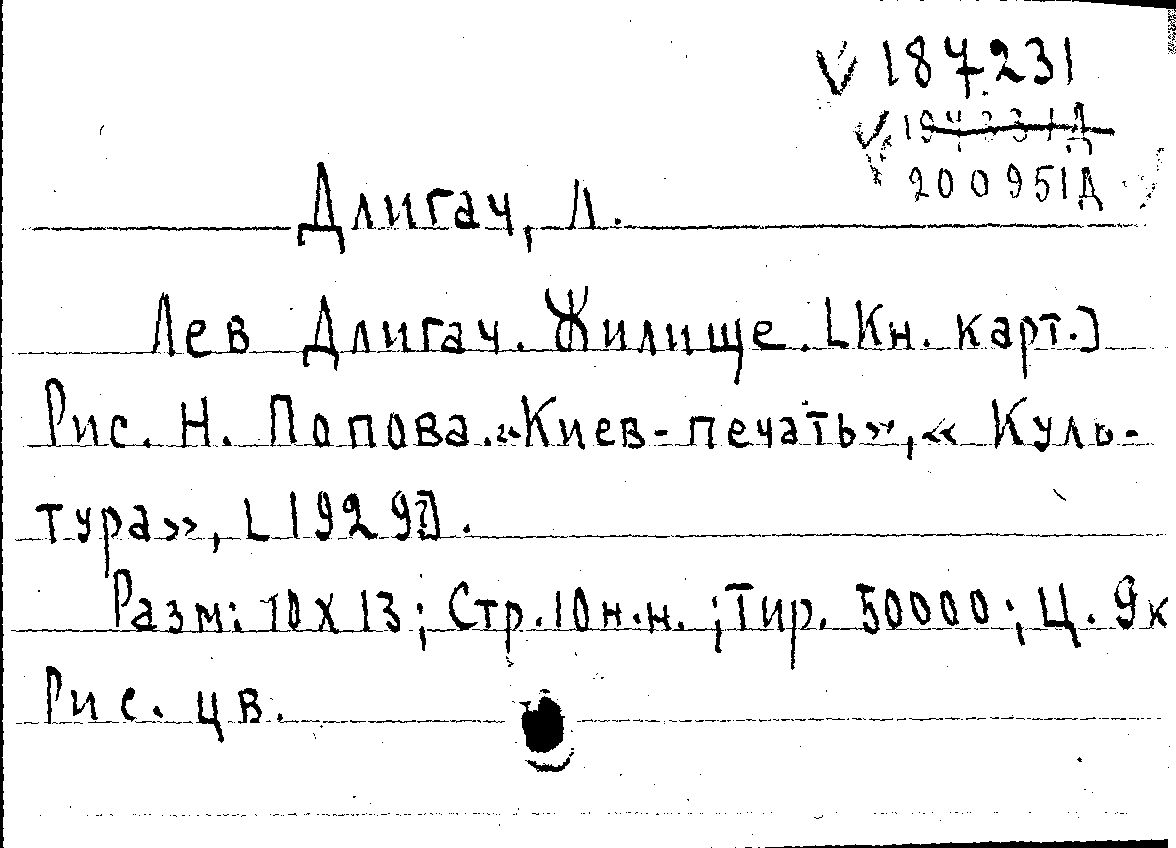 V 187.231
V 194331Д
200951Д
Длигач, Л.
Лев Длигач. Жилище. [Кн. карт.]
Рис. Н. Попова. «Киев-печать», «Куль-
тура», [1929].
Разм: 10 X 13; Стр. 10 н.н.; Тир. 50000; Ц. 9к
Рис. цв.